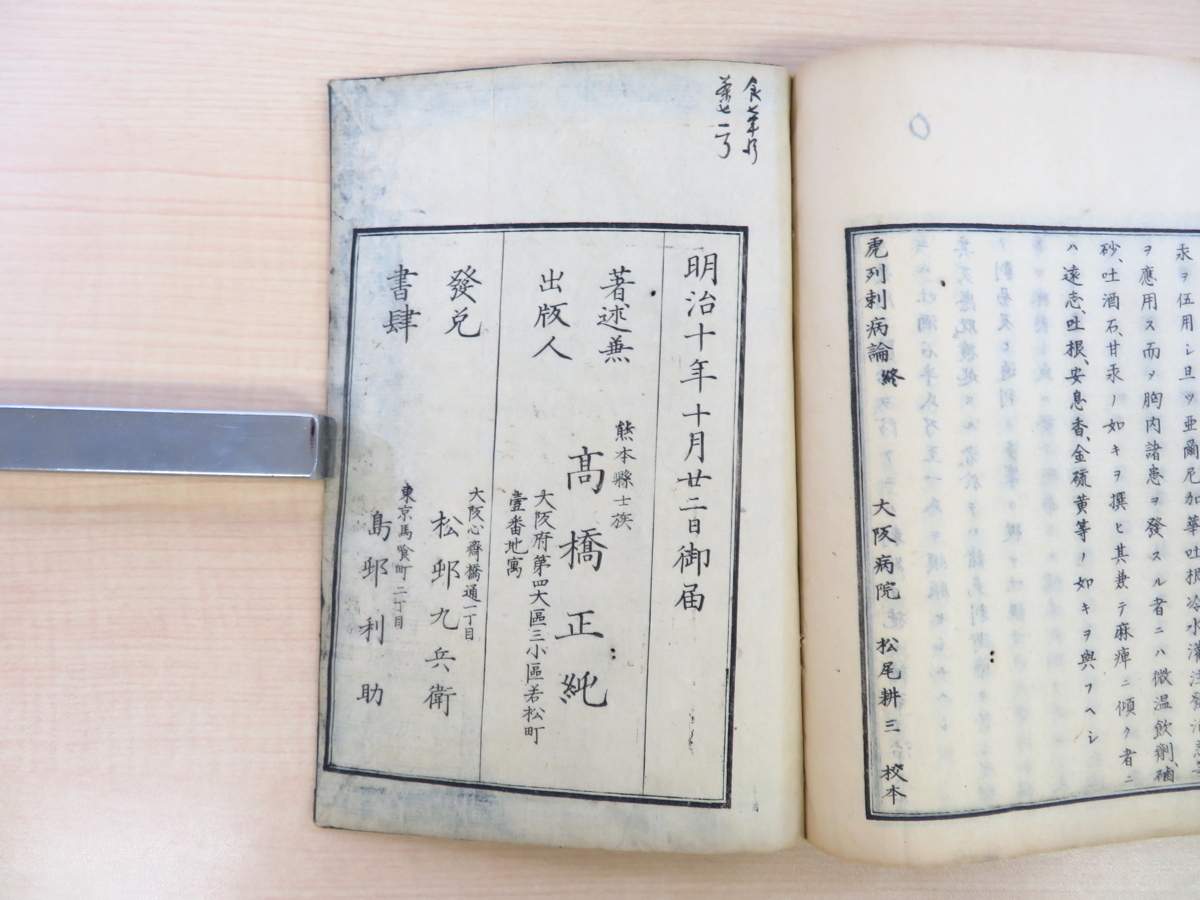 汞ヲ伍用シ且ツ亜爾尼加華吐根冷水灌注發泡
ヲ應用ス而ヲ胸内諸患ヲ發スル者ニハ微温飲劑、
砂、吐酒石、甘汞ノ如キヲ撰ヒ其兼テ麻痺ニ傾ク者ニ
ハ遠志、吐根、安息香、金硫黄等ノ如キヲ與フヘシ
虎列剌病論終 大阪病院 松尾耕三 校本
明治十年十月廿二日御届
著述兼
出版人
熊本縣士族
髙橋正純
大阪府第四大區三小區若松町
壹番地寓
發兌
書肆
大阪心齋橋通一丁目
松邨九兵衛
東京馬喰町二丁目
島邨利助